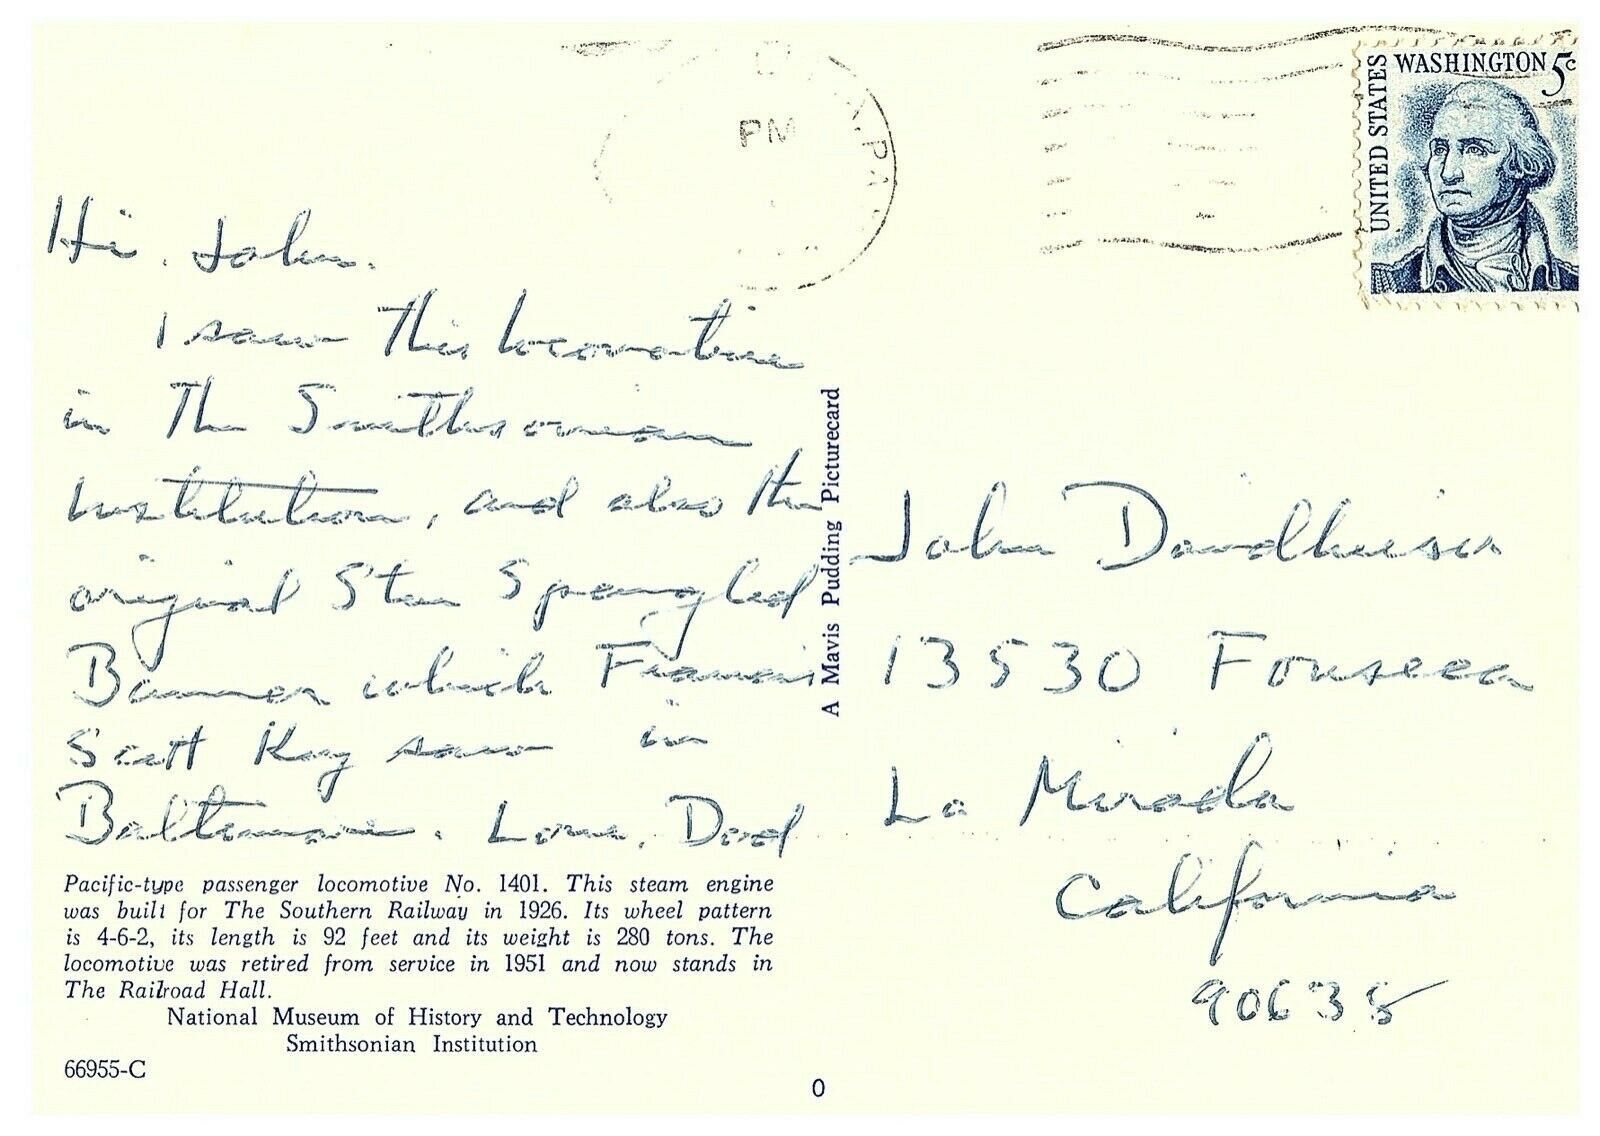 PM
PA
UNITED STATES
WASHINGTON 5c
Hi John.
I saw this locomotive
in the Smithsonian
Institution, and also the
original Star Spangled
Banner which Francis
Scott Key saw in
Baltimore. Love, Dad
Pacific-type passenger locomotive No. 1401. This steam engine
was built for The Southern Railway in 1926. Its wheel pattern
is 4-6-2, its length is 92 feet and its weight is 280 tons. The
locomotive was retired from service in 1951 and now stands in
The Railroad Hall.
National Museum of History and Technology
Smithsonian Institution
66955-C
A Mavis Pudding Picturecard
John
13530 Fonseca
La Mirada
California
90638
0